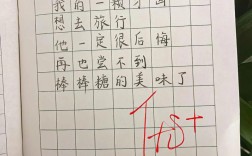 我的一颗牙齿
想去旅行
他一定很后悔
再也尝不到
棒棒糖的美味了